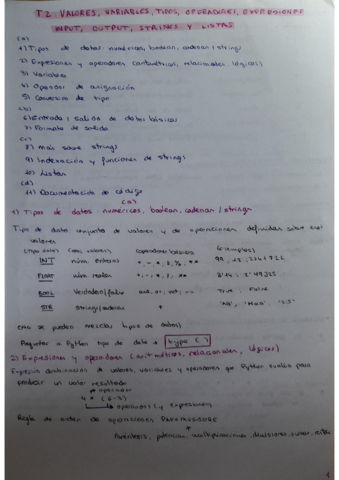 T.2 VALORES, VARIABLES, TIPOS, OPERADORES, EXPRESIONES
INPUT, OUTPUT, STRINGS Y LISTAS
(a)
1) Tipos de datos: numéricos, boolean, cadenas / strings
2) Expresiones y operadores (aritméticos, relacionales, lógicos)
3) Variables
4) Operador de asignación
5) Conversión de tipo
(b)
6) Entrada / salida de datos básicas
7) Formato de salida
(c)
8) más sobre strings
9) Indexación y funciones de strings
10) Listas
(d)
11) Documentación de código
(a)
1) Tipos de datos: numéricos, boolean, cadenas / strings
Tipo de dato: conjunto de valores y de operaciones definidas sobre esos
valores
(Tipo dato) (conj. valores) (operadores básicos) (ejemplos)
INT núm. enteros
FLOAT núm. reales
BOOL Verdadero/falso and, or, not True, False
STR strings/cadenas +
(no se pueden mezclar tipos de datos)
Preguntar a Python tipo de dato → type ( )
2) Expresiones y operadores (aritméticos, relacionales, lógicos)
Expresión: combinación de valores, variables y operadores que Python evalúa para
producir un valor resultado
operador
4 * (6-3)
operadores y expresiones
Regla de orden de operaciones
Paréntesis, potencias, multiplicaciones, divisiones, sumas, restas
1